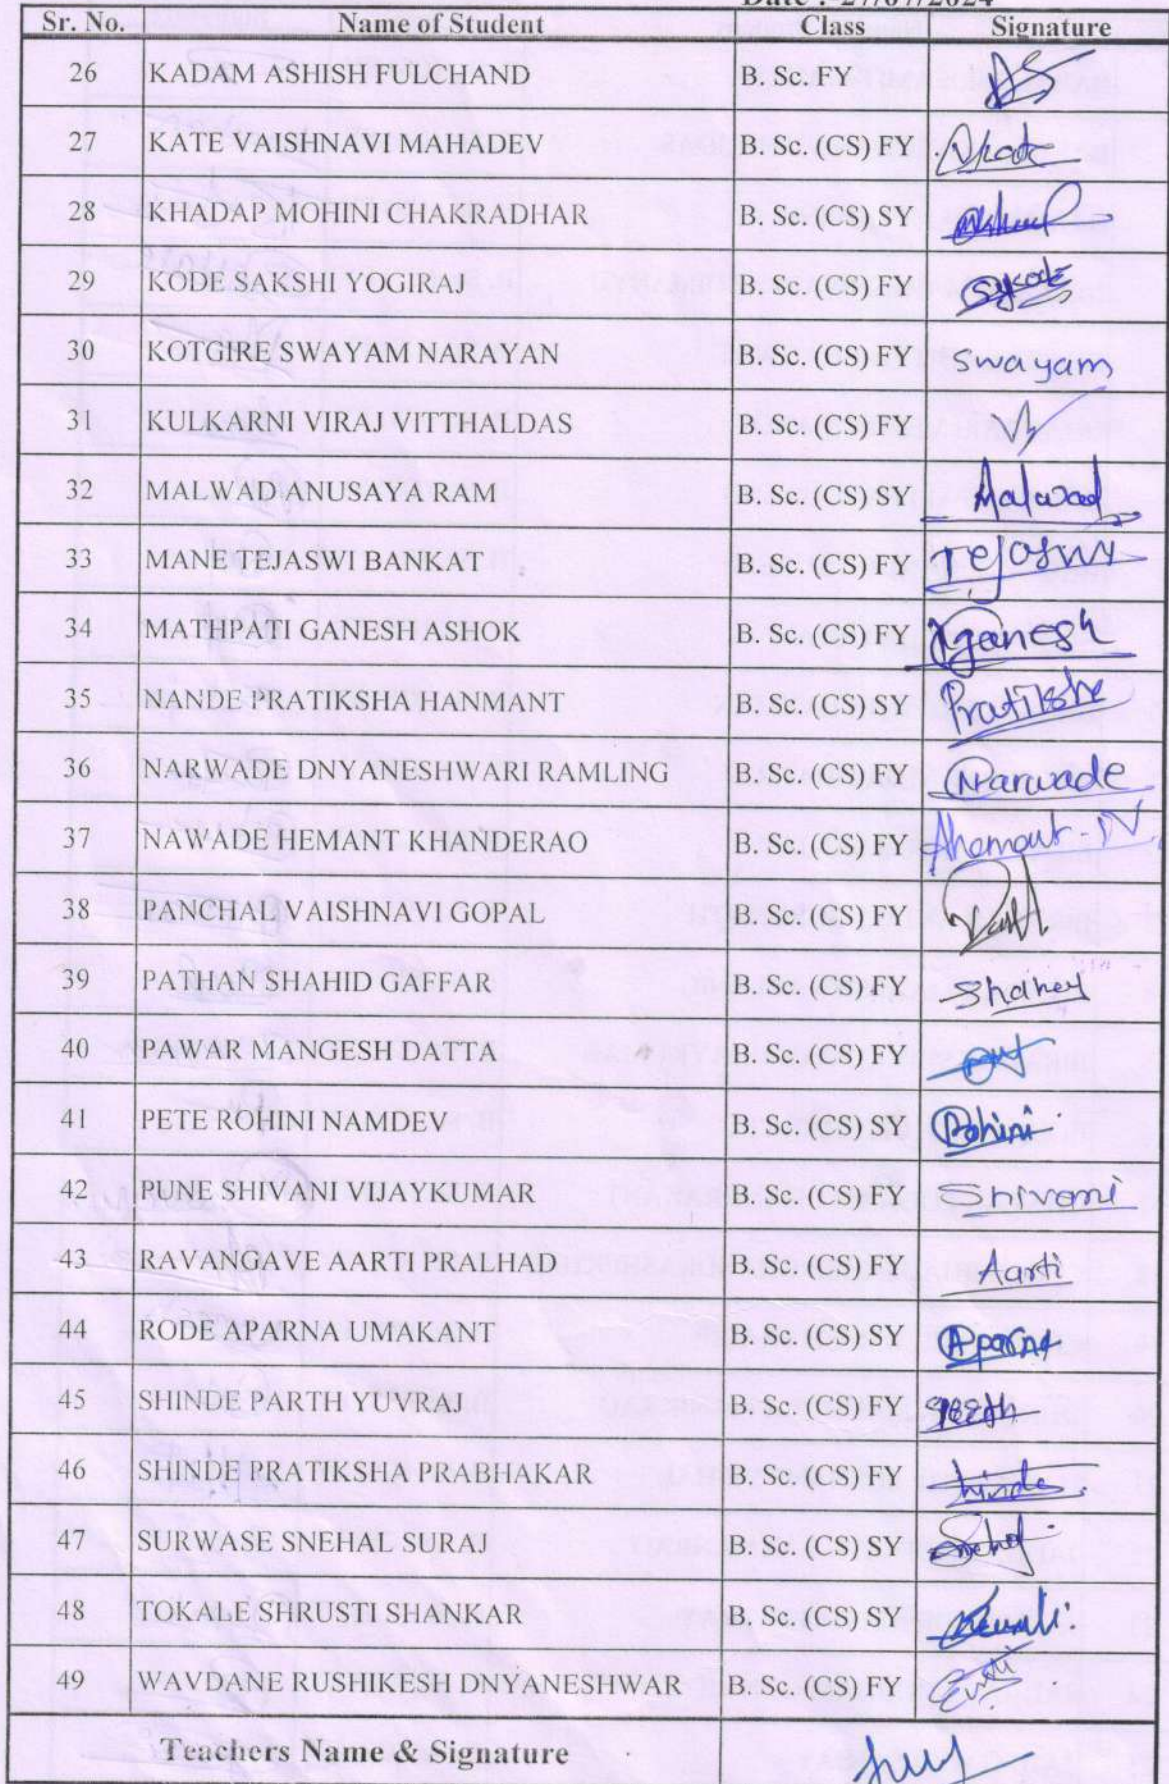 Date :-27/07/2024
Sr. No. Name of Student Class Signature
26 KADAM ASHISH FULCHAND B. Sc. FY
27 KATE VAISHNAVI MAHADEV B. Sc. (CS) FY Vkate
28 KHADAP MOHINI CHAKRADHAR B. Sc. (CS) SY
29 KODE SAKSHI YOGIRAJ B. Sc. (CS) FY sykode
30 KOTGIRE SWAYAM NARAYAN B. Sc. (CS) FY Swayam
31 KULKARNI VIRAJ VITTHALDAS B. Sc. (CS) FY
32 MALWAD ANUSAYA RAM B. Sc. (CS) SY Malwad
33 MANE TEJASWI BANKAT B. Sc. (CS) FY Tejaswi
34 MATHPATI GANESH ASHOK B. Sc. (CS) FY Ganesh
35 NANDE PRATIKSHA HANMANT B. Sc. (CS) SY Pratiksha
36 NARWADE DNYANESHWARI RAMLING B. Sc. (CS) FY Narwade
37 NAWADE HEMANT KHANDERAO B. Sc. (CS) FY
38 PANCHAL VAISHNAVI GOPAL B. Sc. (CS) FY
39 PATHAN SHAHID GAFFAR B. Sc. (CS) FY
40 PAWAR MANGESH DATTA B. Sc. (CS) FY
41 PETE ROHINI NAMDEV B. Sc. (CS) SY Rohini
42 PUNE SHIVANI VIJAYKUMAR B. Sc. (CS) FY Shivani
43 RAVANGAVE AARTI PRALHAD B. Sc. (CS) FY Aarti
44 RODE APARNA UMAKANT B. Sc. (CS) SY Aparna
45 SHINDE PARTH YUVRAJ B. Sc. (CS) FY
46 SHINDE PRATIKSHA PRABHAKAR B. Sc. (CS) FY
47 SURWASE SNEHAL SURAJ B. Sc. (CS) SY Snehal
48 TOKALE SHRUSTI SHANKAR B. Sc. (CS) SY
49 WAVDANE RUSHIKESH DNYANESHWAR B. Sc. (CS) FY
Teachers Name & Signature